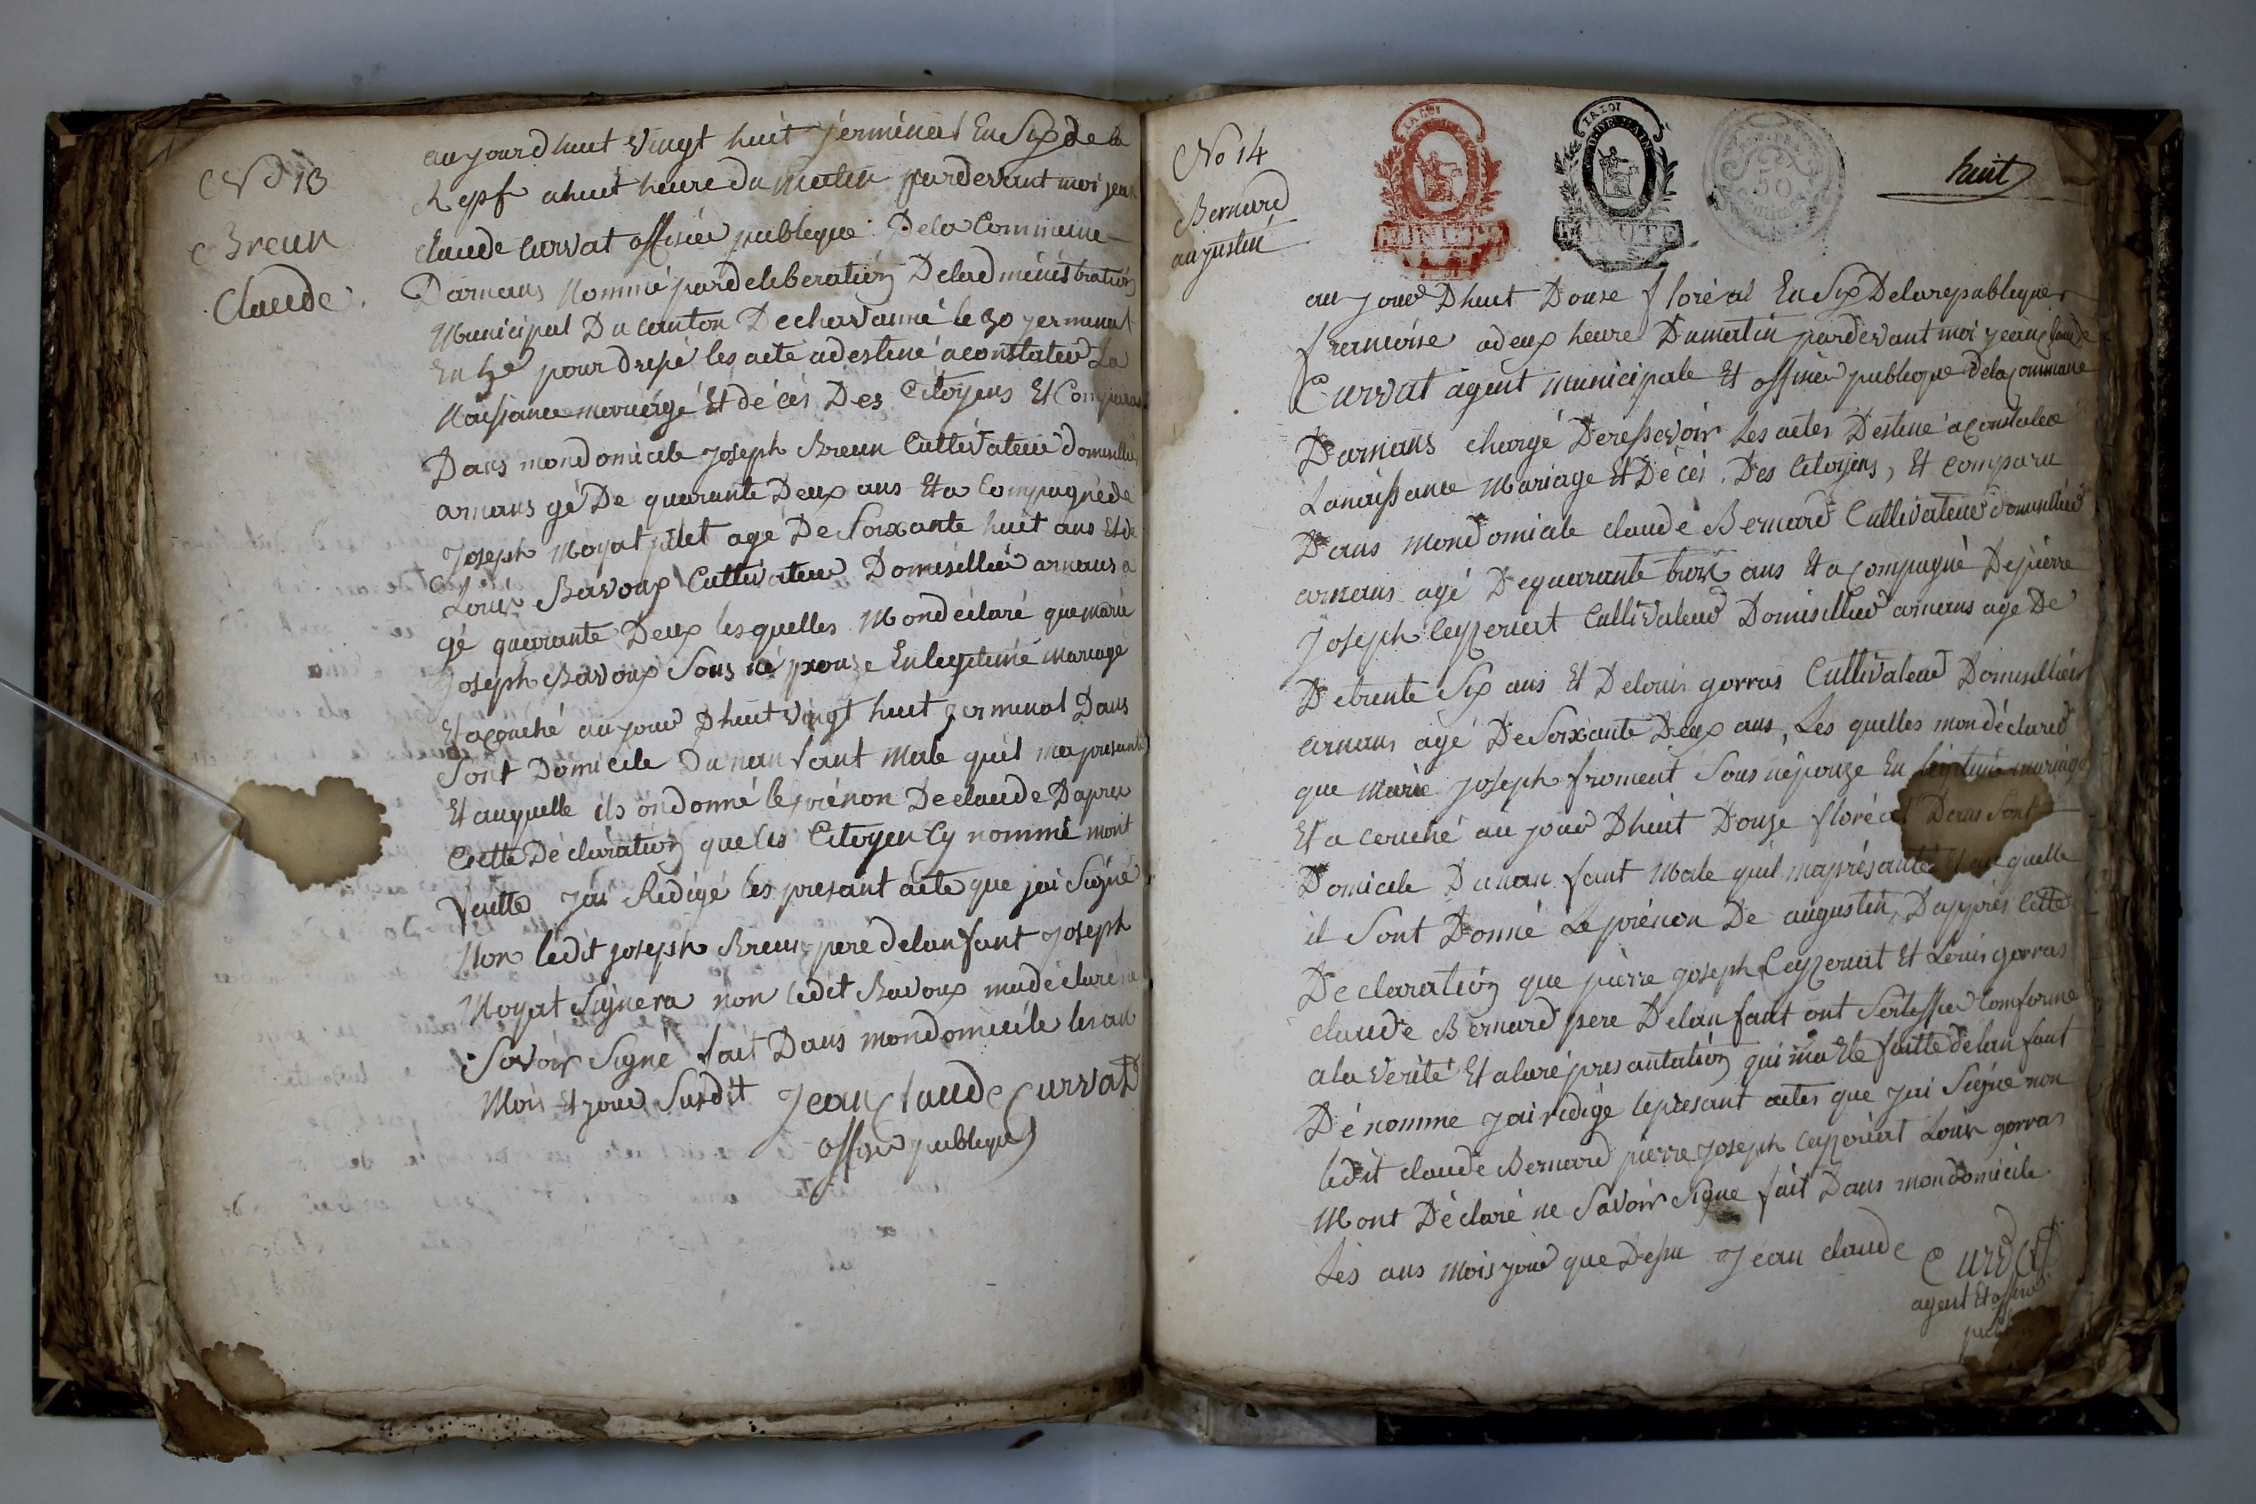 No 13
Breun
Claude.
aujourdhuit vingt huit jerminal En Six de la
Repf a huit heure du matin pardevant moi jean
claude Curvat offisié publique De la Commune
Darnans Nommé par deliberation Deladménistration
Municipal Du canton De chavanné le 30 jerminal
En pour drepé les acte a destiné a constateu La
Naissance mariergé Et décés Des Citoyens Et Comparu
Dans mondomicile Joseph Breun Cultivateur domisillié
arnans gé De quarante Deux ans Et a Compagné de
Joseph Moyat pilet agé De Soixante huit ans Et de
Louis Bavoux Cultivateur Domisillié arnans a
gé quarante Deux les quelles Mondéclaré que marie
Joseph Bavoux Sons né pouze En legitimé mariage
Et a couché au jour Dhuit vingt huit jerminal Dans
Sont Domicile Dunan fant Male quil ma presanté
Et auquelle ils ondonné le prénon De claude Dapres
Cette Déclaration que les Citoyen Cy nommé mont
faitte Jai Redigé les presant acte que jai Signé
Non ledit joseph Breun pere delan fant joseph
Moyat Signera non ledit Bavoux ma déclaré ne
Savoir Signé fait Dans mondomicile les an
Mois Et jour Susdit Jean Claude Curvat
offisié publique
No 14
Bernard
augustin
LA LOI
MINUTE
LA LOI
MINUTE
50
huit
au jour Dhuit Douse floréal En Six Delarepublique
francoise a deux heure Dumatin pardevant moi jean claude
Curvat agent municipale Et offisié publique delacommune
Darnans chargé Deressevoir les actes Destiné a constateu
Lanaissance Mariage Et Décés Des Citoyens, Et comparu
Dans mondomicile claude Bernard Cultivateur domisillié
arnans agé De quarante trois ans Et a compagné De pierre
Joseph Ceyzeriat Cultivateur Domisillié arnans agé De
Detrente Six ans Et De louis gorras Cultivateur Domisilliér
arnans agé De Soixante Deux ans, Les quelles mondéclaré
que Marie Joseph froment Sons népouze En légitime mariage
Et a couché au jour Dhuit Douze floréal Dans Sont
Domicile Dunan fant Male quil maprésanté Et au quelle
il Sont Donné Le prénon De augustin, Dapprès Cette
Declaration que pierre joseph Ceyzeriat Et Louis gorras
claude Bernard pere Delan fant ont Sertiffié Comforme
a la verité Et alaré presantation qui ma Eté faitte delan fant
Dé nommé jai redigé lepresant actes que jai Signe non
ledit claude Bernard pierre joseph Ceyzeriat Louis gorras
Mont Déclaré ne Savoir Signe fait Dans mondomicile
Lés ans mois jour que Dessu Jean claude Curvat
agent Et offisié